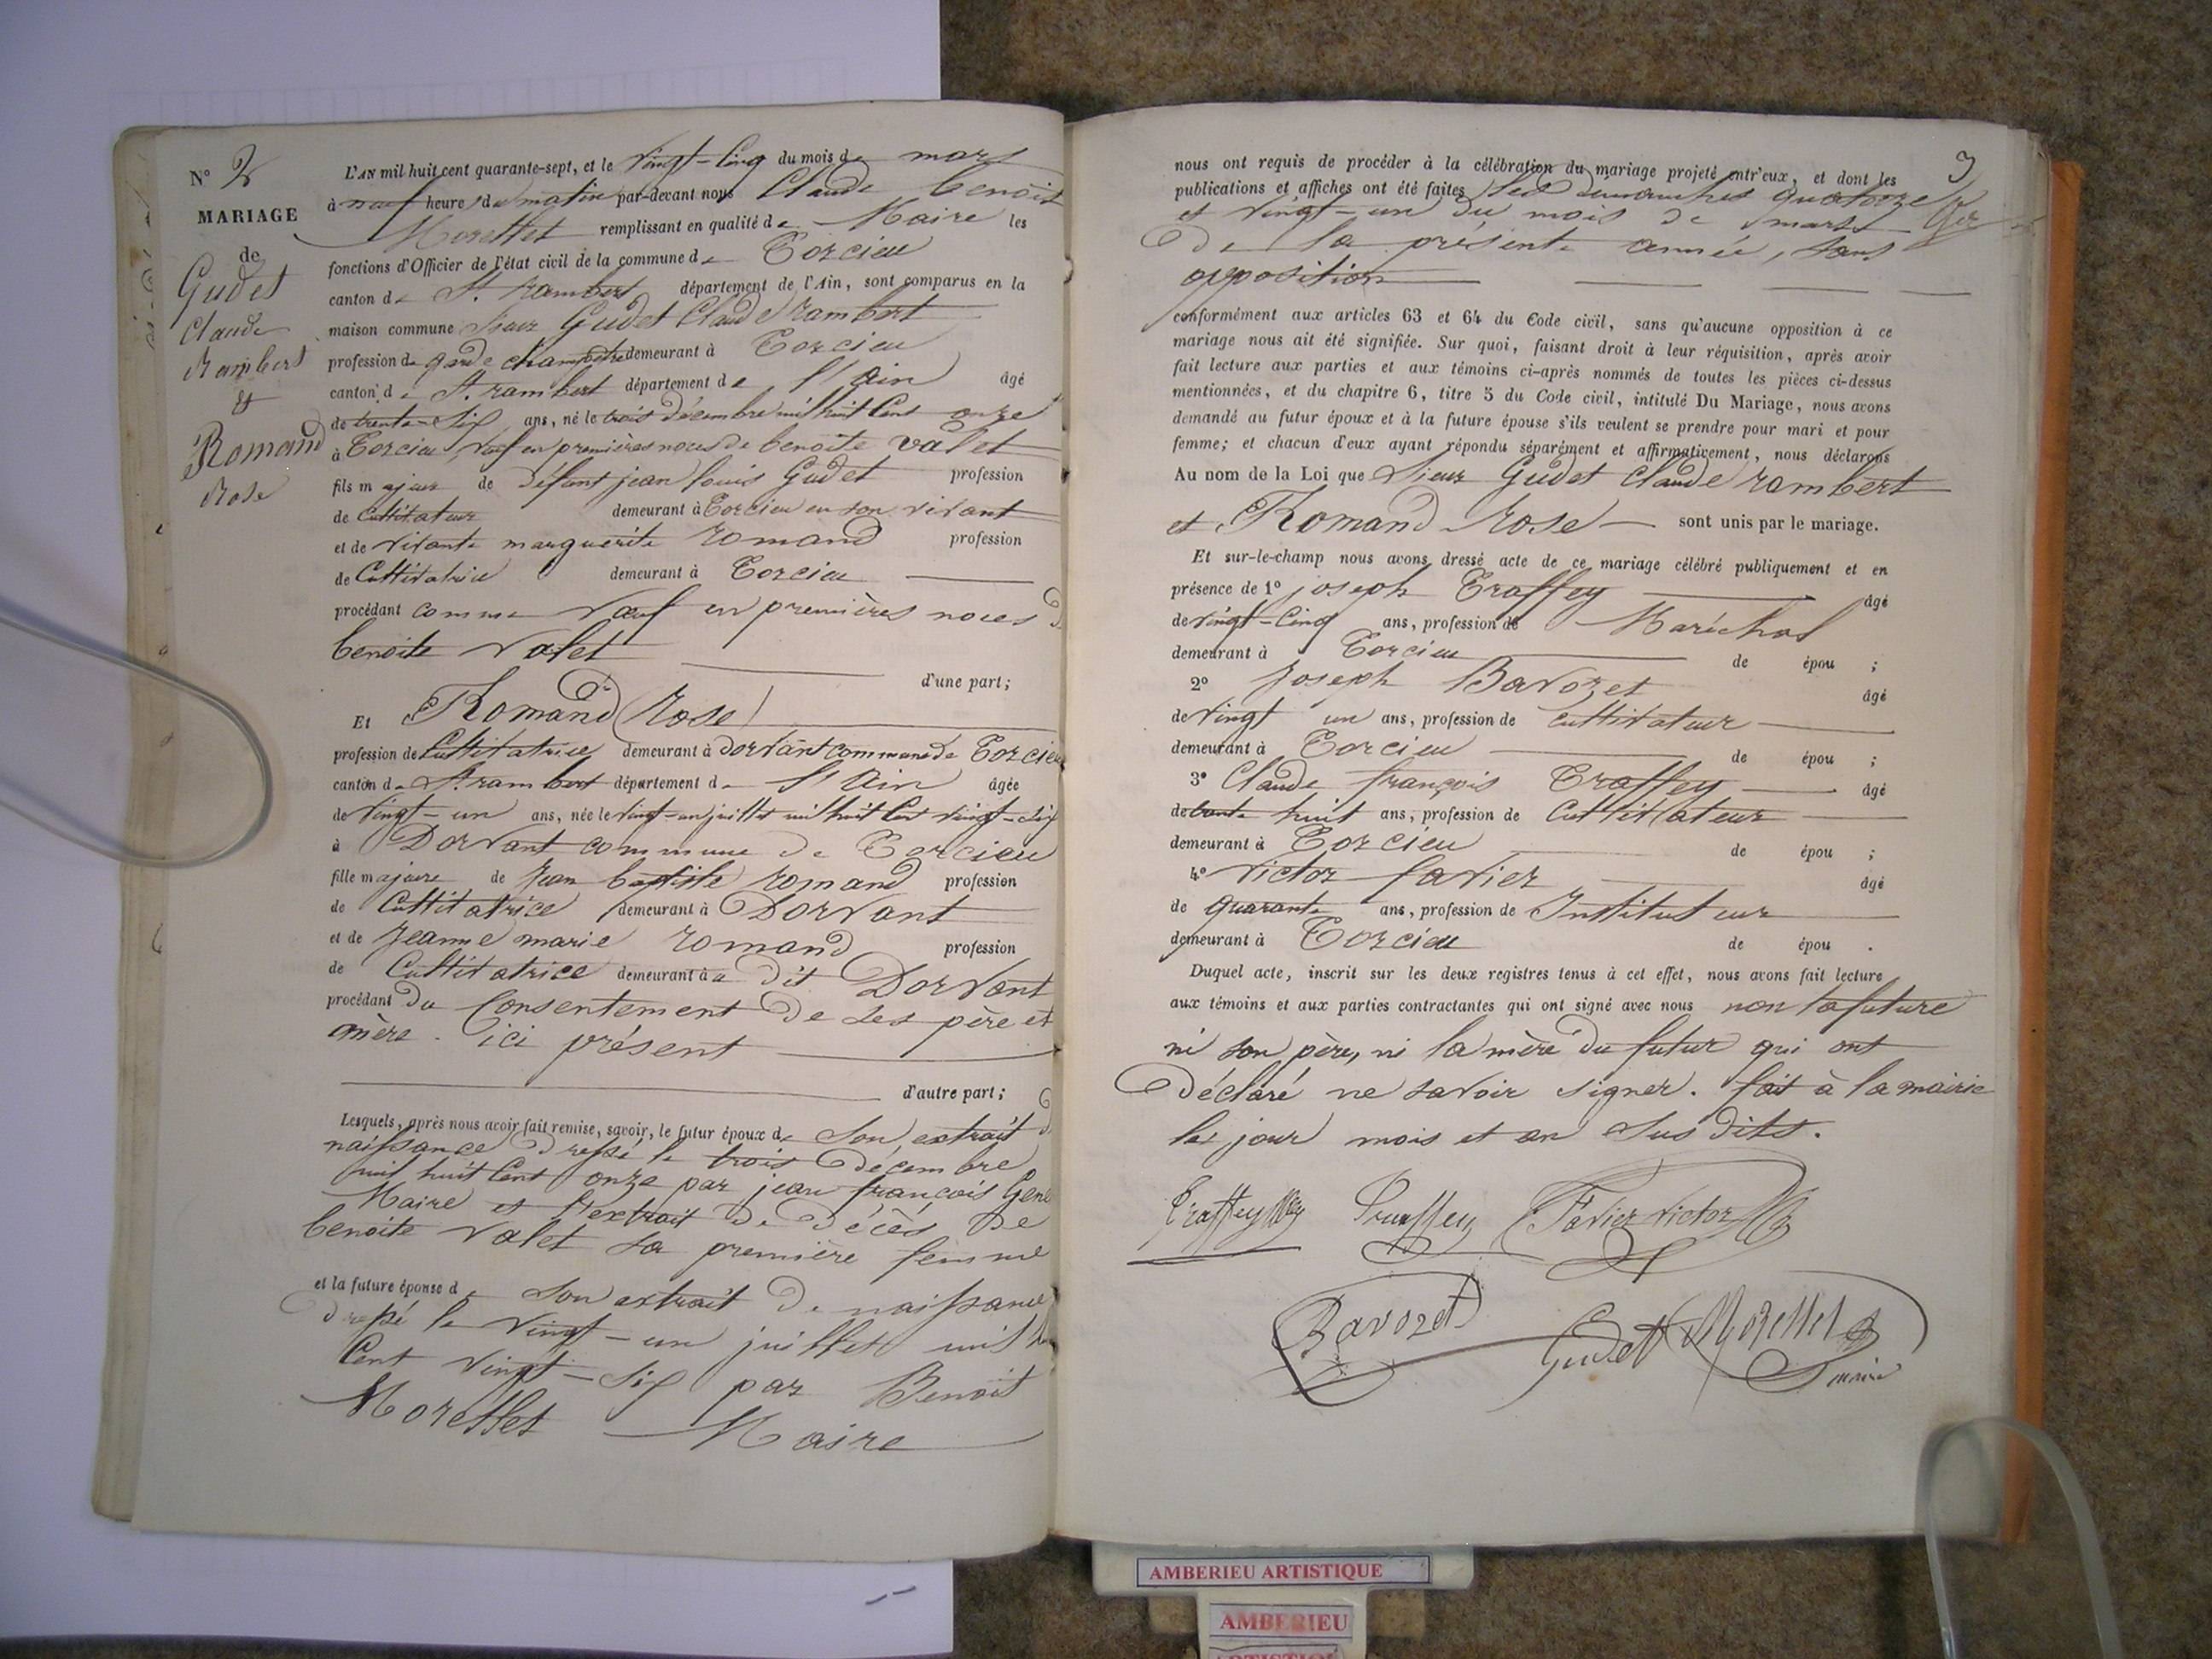 N° 2
MARIAGE
de
Gudet
Claude
Rambert
et
Romand
Rose
L'AN mil huit cent quarante-sept, et le vingt-cinq du mois de mars
à neuf heures du matin par-devant nous Claude benoit
Morettet remplissant en qualité de Maire les
fonctions d'Officier de l'état civil de la commune de Torcieu
canton de St. rambert département de l'Ain, sont comparus en la
maison commune sieur Gudet Claude rambert
profession de garde champêtre demeurant à Torcieu
canton de St. rambert département de l'Ain âgé
de trente-six ans, né le trois décembre mil huit cent onze
à Torcieu, veuf en premières noces de benoite valet
fils majeur de défunt jean louis Gudet profession
de Cultitateur demeurant à Torcieu en son vivant
et de vivante marguerite romand profession
de Cultivatrice demeurant à Torcieu
procédant comme veuf en premières noces de
benoite valet
d'une part;
Et Romand Rose
profession de Cultivatrice demeurant à dorvant commune de Torcieu
canton de St. rambert département de l'Ain âgée
de vingt-un ans, née le vingt-un juillet mil huit cent vingt-six
à Dorvant commune de Torcieu
fille majeure de Jean baptiste romand profession
de Cultivatrice demeurant à Dorvant
et de Jeanne marie romand profession
de Cultivatrice demeurant à a dit Dorvant
procédant du Consentement de ses père et
mère. ici présent
d'autre part;
Lesquels, après nous avoir fait remise, savoir, le futur époux de son extrait de
naissance dressé le trois décembre
mil huit cent onze par jean françois
Maire et l'extrait de décès de
benoite valet sa première femme
et la future épouse de son extrait de naissance
dressé le vingt-un juillet mil
cent vingt-six par Benoit
Morettet Maire
3
nous ont requis de procéder à la célébration du mariage projeté entr'eux, et dont les
publications et affiches ont été faites les dimanches quatorze
et vingt-un du mois de mars
de la présente année, sans
opposition
conformément aux articles 63 et 64 du Code civil, sans qu'aucune opposition à ce
mariage nous ait été signifiée. Sur quoi, faisant droit à leur réquisition, après avoir
fait lecture aux parties et aux témoins ci-après nommés de toutes les pièces ci-dessus
mentionnées, et du chapitre 6, titre 5 du Code civil, intitulé Du Mariage, nous avons
demandé au futur époux et à la future épouse s'ils veulent se prendre pour mari et pour
femme; et chacun d'eux ayant répondu séparément et affirmativement, nous déclarons
Au nom de la Loi que Sieur Gudet Claude rambert
et Romand Rose sont unis par le mariage.
Et sur-le-champ nous avons dressé acte de ce mariage célébré publiquement et en
présence de 1° joseph Traffey âgé
de vingt-cinq ans, profession de Maréchal
demeurant à Torcieu de épou ;
2° Joseph Bavozet âgé
de vingt un ans, profession de cultivateur
demeurant à Torcieu de épou ;
3° Claude françois Traffey âgé
de trente huit ans, profession de Cultivateur
demeurant à Torcieu de épou ;
4° Victor favier âgé
de quarante ans, profession de Instituteur
demeurant à Torcieu de épou .
Duquel acte, inscrit sur les deux registres tenus à cet effet, nous avons fait lecture
aux témoins et aux parties contractantes qui ont signé avec nous non la future
ni son père, ni la mère du futur qui ont
déclaré ne savoir signer. fait à la mairie
les jour mois et an sus dits.
Traffey Favier victor
Bavozet Gudet Morettet
maire
AMBERIEU ARTISTIQUE
AMBERIEU
ARTISTIQUE